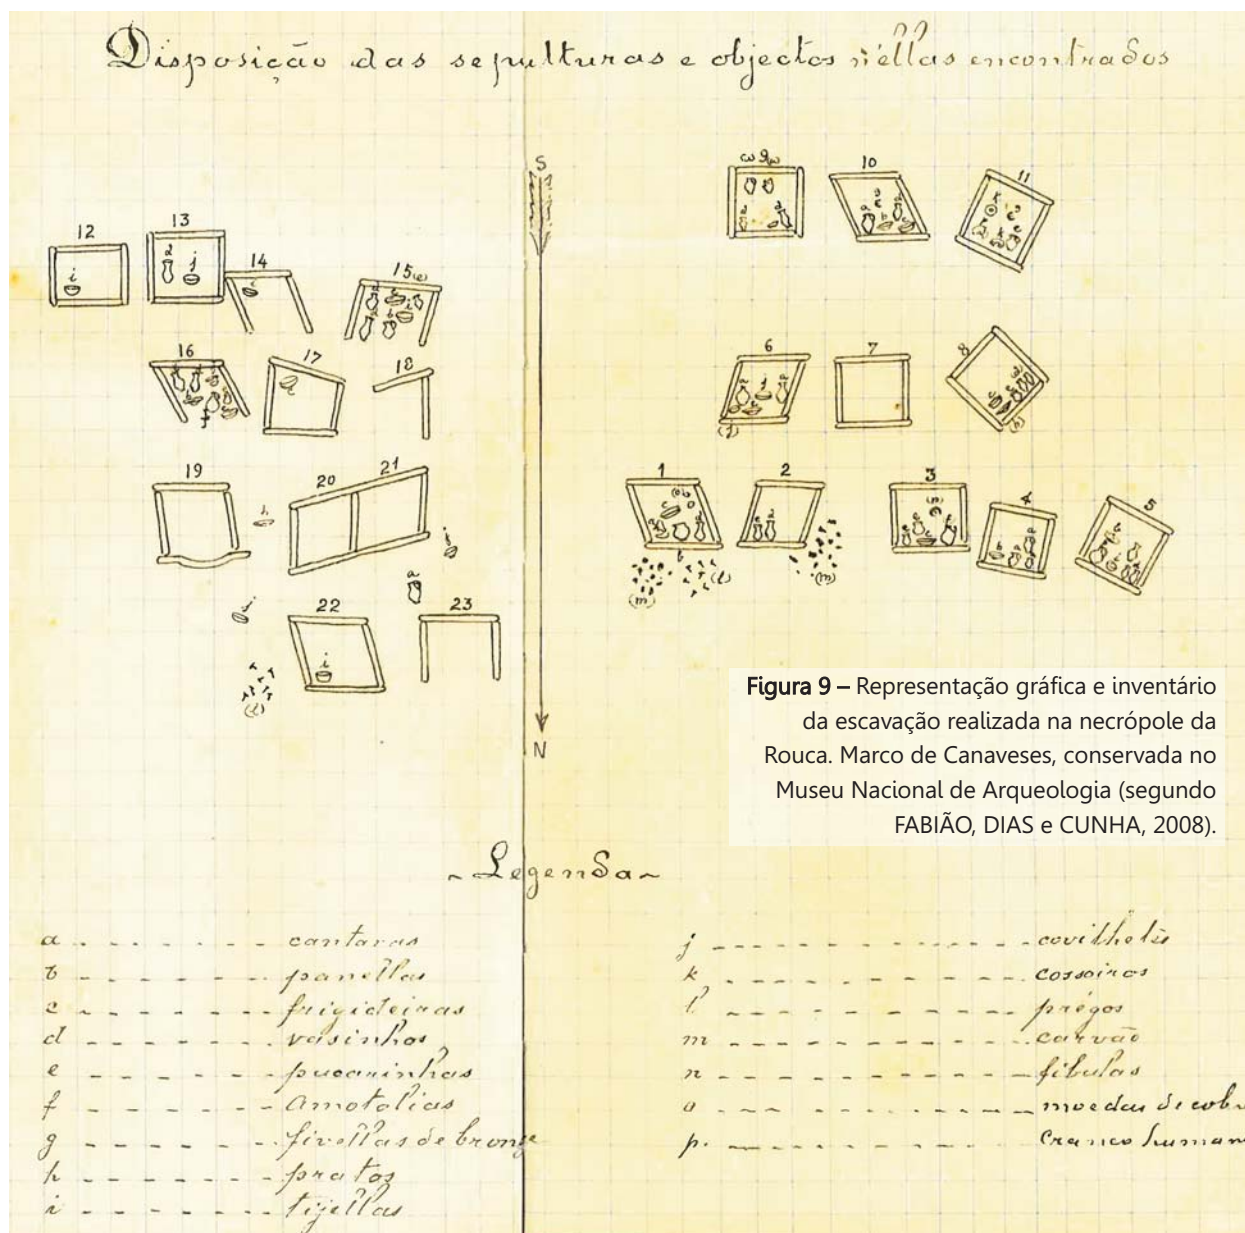 Disposição das sepulturas e objectos n'éllas encontrados
S
9
10
11
12
13
14
15(e)
16
17
18
6
7
8
19
20
21
1
2
3
4
5
(l)
(m)
(l)
(m)
22
23
(l)
N
Figura 9 – Representação gráfica e inventário
da escavação realizada na necrópole da
Rouca. Marco de Canaveses, conservada no
Museu Nacional de Arqueologia (segundo
FABIÃO, DIAS e CUNHA, 2008).
~ Legenda ~
a - - - - - - - cantaras
b - - - - - - - panellas
c - - - - - - - frigideiras
d - - - - - - - vasinhos
e - - - - - - - pucarinhas
f - - - - - - - Amotolias
g - - - - - - - fivellas de bronze
h - - - - - - - pratos
i - - - - - - - tijellas
j - - - - - - - covilhetes
k - - - - - - - cossoiros
l - - - - - - - prégos
m - - - - - - - carvão
n - - - - - - - fibulas
o - - - - - - - moedas de cob
p. - - - - - - - Craneo human